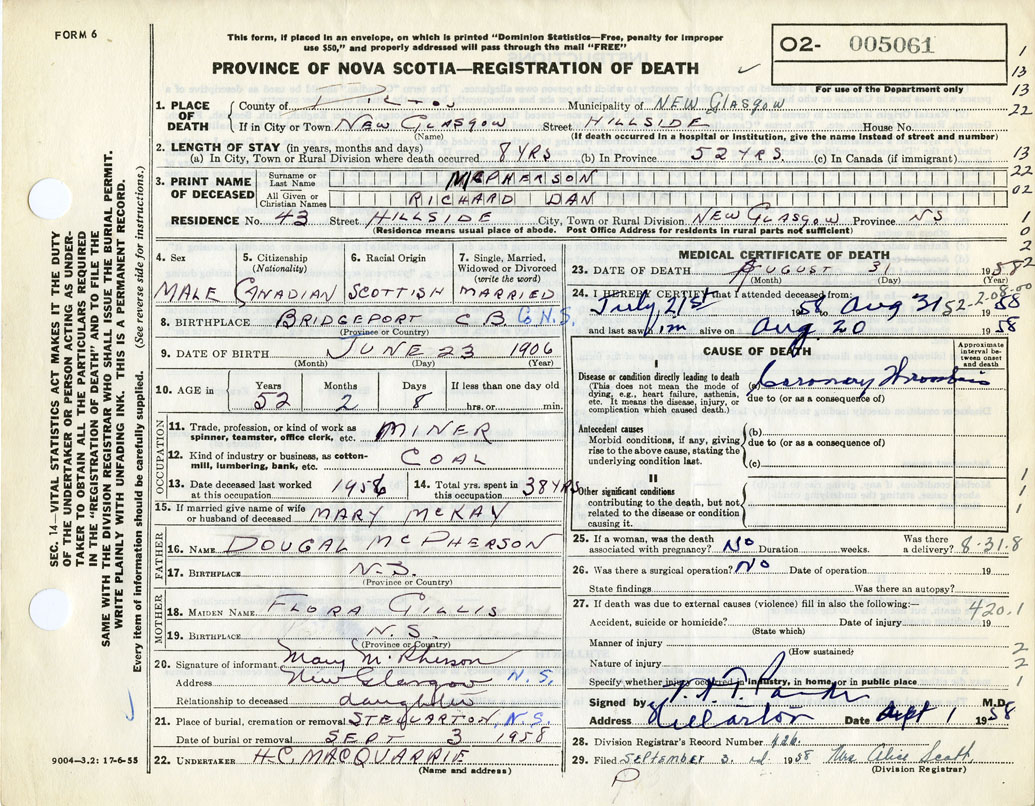 FORM 6
This form, if placed in an envelope, on which is printed "Dominion Statistics—Free, penalty for improper
use $50," and properly addressed will pass through the mail "FREE"
PROVINCE OF NOVA SCOTIA—REGISTRATION OF DEATH
O2- 005061
For use of the Department only
1
13
13
22
13
22
02
0
2
1. PLACE OF DEATH
County of Pictou Municipality of NEW GLASGOW
If in City or Town NEW GLASGOW Street HILLSIDE House No.
(Name) (If death occurred in a hospital or institution, give the name instead of street and number)
2. LENGTH OF STAY (in years, months and days)
(a) In City, Town or Rural Division where death occurred 8 YRS (b) In Province 52 YRS. (c) In Canada (if immigrant)
3. PRINT NAME OF DECEASED
Surname or Last Name MCPHERSON
All Given or Christian Names RICHARD DAN
RESIDENCE No. 43 Street HILLSIDE City, Town or Rural Division NEW GLASGOW Province NS
(Residence means usual place of abode. Post Office Address for residents in rural parts not sufficient)
4. Sex
MALE
5. Citizenship (Nationality)
CANADIAN
6. Racial Origin
SCOTTISH
7. Single, Married, Widowed or Divorced (write the word)
MARRIED
8. BIRTHPLACE BRIDGEPORT C B. N.S.
(Province or Country)
9. DATE OF BIRTH JUNE 23 1906
(Month) (Day) (Year)
10. AGE in Years 52 Months 2 Days 8 If less than one day old hrs. or min.
OCCUPATION
11. Trade, profession, or kind of work as spinner, teamster, office clerk, etc. MINER
12. Kind of industry or business, as cotton-mill, lumbering, bank, etc. COAL
13. Date deceased last worked at this occupation 1956
14. Total yrs. spent in this occupation 38 YRS
15. If married give name of wife or husband of deceased MARY MCKAY
FATHER
16. NAME DOUGAL MCPHERSON
17. BIRTHPLACE N.S.
(Province or Country)
MOTHER
18. MAIDEN NAME FLORA GILLIS
19. BIRTHPLACE N.S.
(Province or Country)
20. Signature of informant Mary McPherson
Address New Glasgow N.S.
Relationship to deceased daughter
21. Place of burial, cremation or removal STELLARTON, N.S.
Date of burial or removal SEPT 3 1958
22. UNDERTAKER H.C. MACQUARRIE
(Name and address)
MEDICAL CERTIFICATE OF DEATH
23. DATE OF DEATH AUGUST 31 1958
(Month) (Day) (Year)
24. I HEREBY CERTIFY that I attended deceased from:
July 21st 1958 to Aug 31 1958
and last saw him alive on Aug 20 1958
CAUSE OF DEATH
Approximate interval between onset and death
I
Disease or condition directly leading to death
(This does not mean the mode of dying, e.g., heart failure, asthenia, etc. It means the disease, injury, or complication which caused death.)
(a) Coronary Thrombosis
due to (or as a consequence of)
Antecedent causes
Morbid conditions, if any, giving rise to the above cause, stating the underlying condition last.
(b)
due to (or as a consequence of)
(c)
II
Other significant conditions
contributing to the death, but not related to the disease or condition causing it.
1
1
1
25. If a woman, was the death associated with pregnancy? No Duration weeks. Was there a delivery? 8.31.8
26. Was there a surgical operation? No Date of operation 19
State findings Was there an autopsy?
27. If death was due to external causes (violence) fill in also the following:— 420.1
Accident, suicide or homicide? Date of injury 19
(State which)
Manner of injury 2
(How sustained)
Nature of injury 2
Specify whether injury occurred in industry, in home or in public place 1
Signed by M.D.
Address Stellarton Date Sept 1 1958
28. Division Registrar's Record Number 426
29. Filed September 3 rd 1958 Mrs Alice Scott
(Division Registrar)
SEC. 14—VITAL STATISTICS ACT MAKES IT THE DUTY
OF THE UNDERTAKER OR PERSON ACTING AS UNDER-
TAKER TO OBTAIN ALL THE PARTICULARS REQUIRED
IN THE "REGISTRATION OF DEATH" AND TO FILE THE
SAME WITH THE DIVISION REGISTRAR WHO SHALL ISSUE THE BURIAL PERMIT.
WRITE PLAINLY WITH UNFADING INK. THIS IS A PERMANENT RECORD.
Every item of information should be carefully supplied. (See reverse side for instructions.)
9004—3.2: 17-6-55